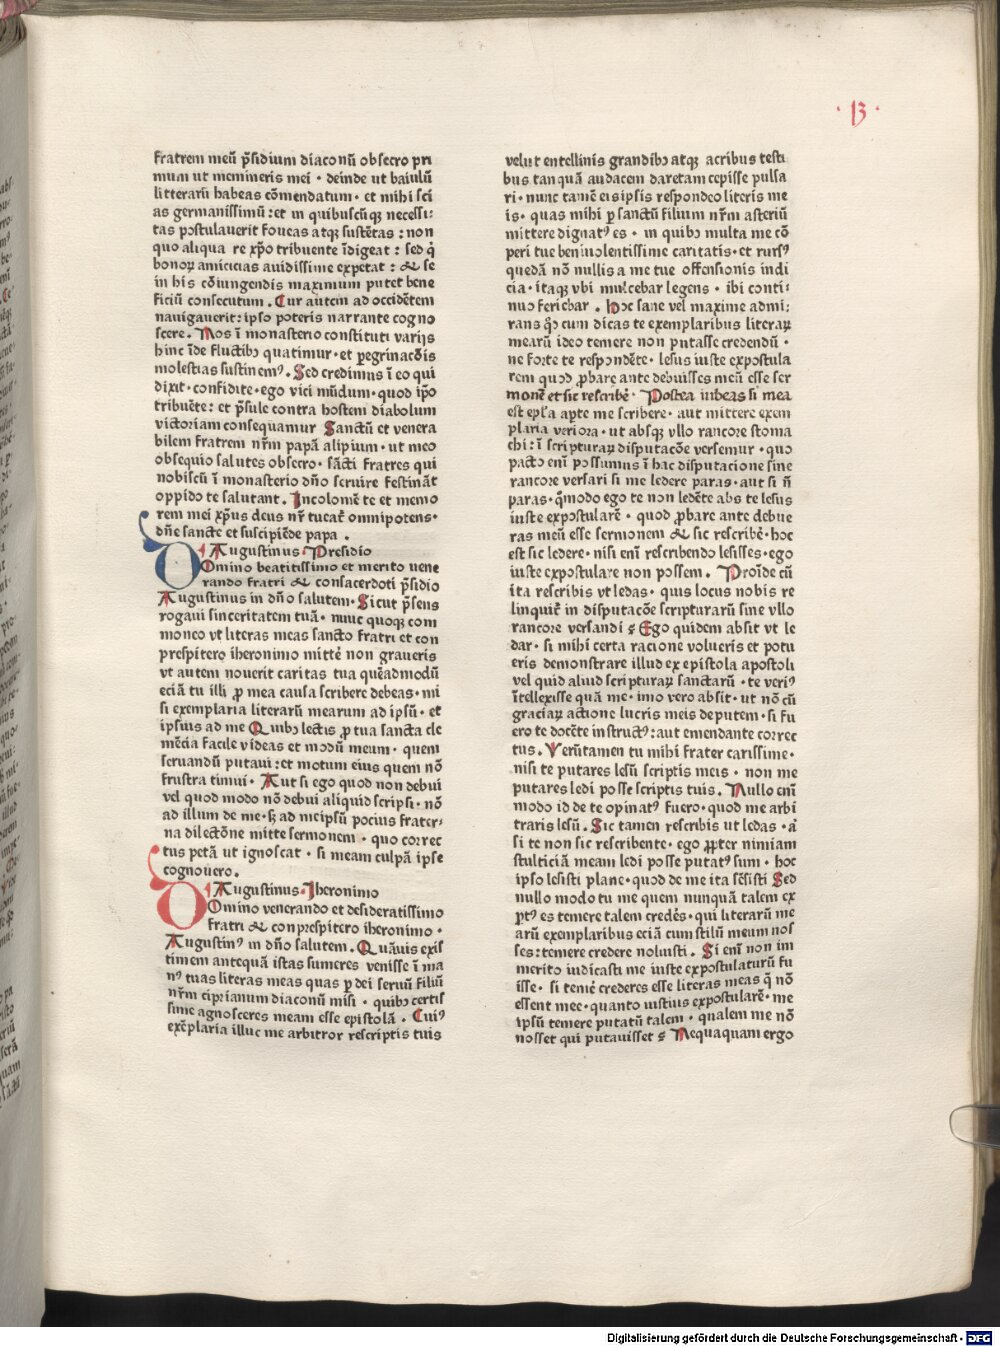 · 13 ·
fratrem meũ p̃sidium diaconũ obsecro pri
mum ut memineris mei · deinde ut baiulũ
litterarũ habeas cõmendatum · et mihi sci
as germanissimũ : et in quibuscũqꝫ necessi:
tas postulauerit foueas atqꝫ sustẽtas : non
quo aliqua re xp̃o tribuente ĩdigeat : sed q̃
bonoꝝ amicicias auidissime expetat : & se
in his cõiungendis maximum putet bene
ficiũ consecutum . Cur autem ad occidẽtem
nauigauerit : ipso poteris narrante cogno
scere . Nos ĩ monasterio constituti varijs
hinc ĩde fluctibꝰ quatimur · et ꝑegrinacõis
molestias sustinemꝰ . Sed credimus ĩ eo qui
dixit · confidite · ego vici mũdum · quod ip̃o
tribuẽte : et p̃sule contra hostem diabolum
victoriam consequamur Sanctũ et venera
bilem fratrem nr̃m papã alipium · ut meo
obsequio salutes obsecro · sãcti fratres qui
nobiscũ ĩ monasterio dño seruire festinãt
oppido te salutant . Incolomẽ te et memo
rem mei xp̃us deus nr̃ tueat̃ omnipotens ·
dñe sancte et suscipiẽde papa .
Augustinus · Presidio
Domino beatissimo et merito uene
rando fratri & consacerdoti p̃sidio
Augustinus in dño salutem . Sicut p̃sens
rogaui sinceritatem tuã · nunc quoqꝫ com
moneo vt literas meas sancto fratri et con
prespitero iheronimo mittẽ non graueris
vt autem nouerit caritas tua quẽadmodũ
eciã tu illi ꝓ mea causa scribere debeas · mi
si exemplaria literarũ mearum ad ipsũ · et
ipsius ad me Quibꝰ lectis ꝓ tua sancta cle
mẽcia facile videas et modũ meum · quem
seruandũ putaui : et motum eius quem nõ
frustra timui · Aut si ego quod non debui
vel quod modo nõ debui aliquid scripsi · nõ
ad illum de me · sꝫ ad meipsũ pocius frater:
na dilectõne mitte sermonem · quo correc
tus petã ut ignoscat · si meam culpã ipse
cognouero .
Augustinus · Iheronimo
Domino venerando et desideratissimo
fratri & conprespitero iheronimo ·
Augustinꝰ in dño salutem . Quãuis exis
timem antequã istas sumeres venisse ĩ ma
nꝰ tuas literas meas quas ꝑ dei seruũ filiũ
nr̃m ciprianum diaconũ misi · quibꝰ certis
sime agnosceres meam esse epistolã . Cuiꝰ
exẽplaria illuc me arbitror rescriptis tuis
velut entellinis grandibꝰ atqꝫ acribus testi
bus tanquã audacem daretam cepisse pulsa
ri · nunc tamẽ eis ipsis respondeo literis me
is · quas mihi ꝑ sanctũ filium nr̃m asteriũ
mittere dignatꝰ es · in quibꝰ multa me cõ
peri tue beniuolentissime caritatis · et rursꝰ
quedã nõ nullis a me tue offensionis indi
cia · itaqꝫ vbi mulcebar legens · ibi conti:
nuo feriebar . Hoc sane vel maxime admi:
rans qꝫ cum dicas te exemplaribus literaꝝ
mearũ ideo temere non putasse credendũ ·
ne forte te respondẽte · lesus iuste expostula
rem quod ꝓbare ante debuisses meũ esse ser
monẽ et sic rescribẽ · Postea iubeas si mea
est epl̃a aꝑte me scribere · aut mittere exem
plaria veriora · ut absqꝫ vllo rancore stoma
chi : ĩ scripturaꝝ disputacõe versemur · quo
pacto eni᷒ possumus ĩ hac disputacione sine
rancore versari si me ledere paras · aut si ñ
paras · q̃modo ego te non ledẽte abs te lesus
iuste expostularẽ · quod ꝓbare ante debue
ras meũ esse sermonem & sic rescribẽ · hoc
est sic ledere · nisi eni᷒ rescribendo lesisses · ego
iuste expostulare non possem . Proĩde cũ
ita rescribis vt ledas · quis locus nobis re
linquit̃ in disputacõe scripturarũ sine vllo
rancore versandi ꝰ Ego quidem absit vt le
dar · si mihi certa racione volueris et potu
eris demonstrare illud ex epistola apostoli
vel quid aliud scripturaꝝ sanctarũ · te veriꝰ
ĩtellexisse quã me · imo vero absit · ut nõ cũ
graciaꝝ actione lucris meis deputem · si fu
ero te docẽte instructꝰ : aut emendante correc
tus . Verũtamen tu mihi frater carissime ·
nisi te putares lesũ scriptis meis · non me
putares ledi posse scriptis tuis . Nullo eni᷒
modo id de te opinatꝰ fuero · quod me arbi
traris lesũ . Sic tamen rescribis ut ledas · a᷒
si te non sic rescribente · ego ꝓpter nimiam
stulticiã meam ledi posse putatꝰ sum · hoc
ipso lesisti plane · quod de me ita sẽsisti Sed
nullo modo tu me quem nunquã talem ex
ꝑtꝰ es temere talem credẽs · qui literarũ me
arũ exemplaribus eciã cum stilũ meum nos
ses : temere credere noluisti . Si eni᷒ non im
merito iudicasti me iuste expostulaturũ fu
isse · si temẽ crederes esse literas meas q̃ nõ
essent mee · quanto iustius expostularẽ · me
ipsũ temere putatũ talem · qualem me nõ
nosset qui putauisset ꝰ Nequaquam ergo
Digitalisierung gefördert durch die Deutsche Forschungsgemeinschaft · DFG